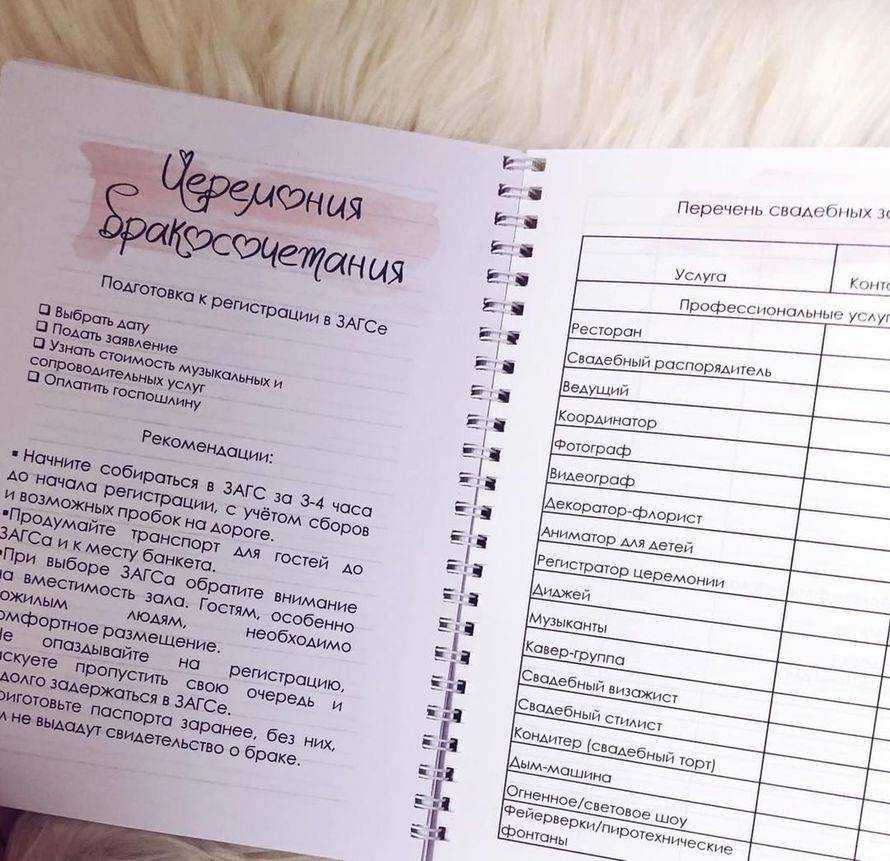 Церемония
бракосочетания
Подготовка к регистрации в ЗАГСе
❑ Выбрать дату
❑ Подать заявление
❑ Узнать стоимость музыкальных и
сопроводительных услуг
❑ Оплатить госпошлину
Рекомендации:
▪ Начните собираться в ЗАГС за 3-4 часа
до начала регистрации, с учётом сборов
и возможных пробок на дороге.
▪Продумайте транспорт для гостей до
ЗАГСа и к месту банкета.
▪При выборе ЗАГСа обратите внимание
на вместимость зала. Гостям, особенно
ожилым людям, необходимо
омфортное размещение.
Не опаздывайте на регистрацию,
искуете пропустить свою очередь и
долго задержаться в ЗАГСе.
риготовьте паспорта заранее, без них,
м не выдадут свидетельство о браке.
Перечень свадебных за
Услуга Конта
Профессиональные услуг
Ресторан
Свадебный распорядитель
Ведущий
Координатор
Фотограф
Видеограф
Декоратор-флорист
Аниматор для детей
Регистратор церемонии
Диджей
Музыканты
Кавер-группа
Свадебный визажист
Свадебный стилист
Кондитер (свадебный торт)
Дым-машина
Огненное/световое шоу
Фейерверки/пиротехнические
фонтаны